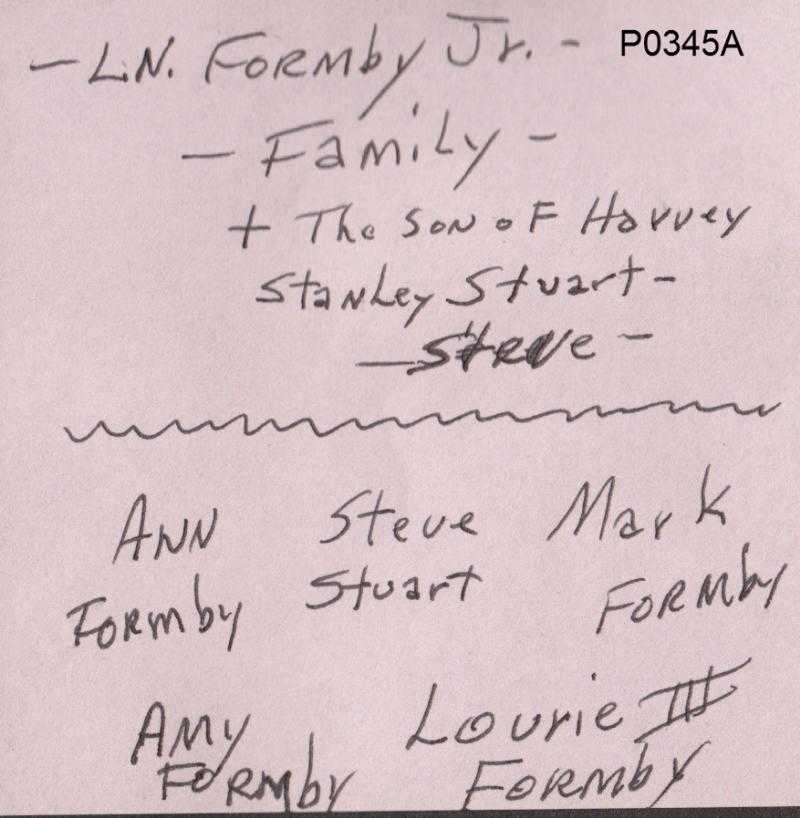 - L.N. Formby Jr. - P0345A
- Family -
+ The Son of Harvey
Stanley Stuart -
- Steve -
Ann Steve Mark
Formby Stuart Formby
Amy Lourie III
Formby Formby